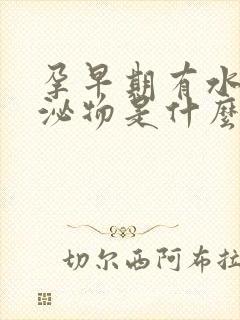 孕早期有水
泌物是什麼
切尔西阿布拉